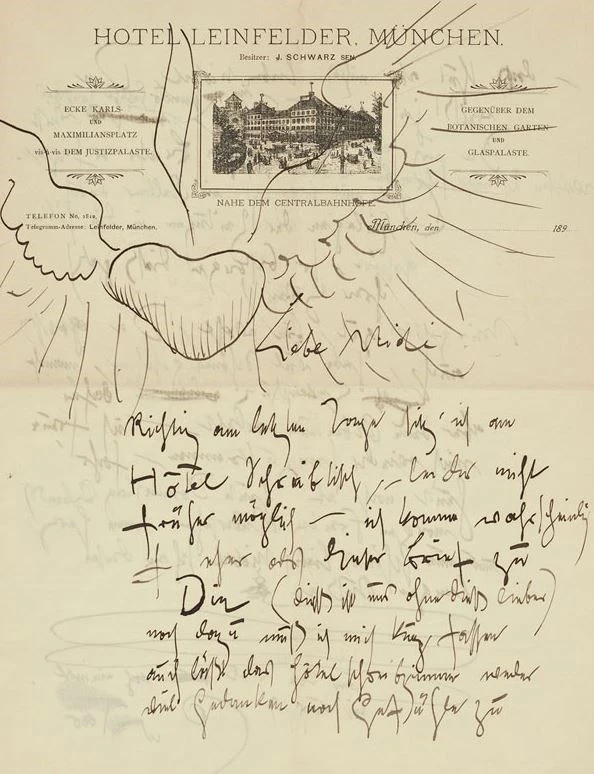 HOTEL LEINFELDER, MÜNCHEN.
Besitzer: J. SCHWARZ SEN.
ECKE KARLS-
UND
MAXIMILIANSPLATZ
vis-à-vis DEM JUSTIZPALASTE.
GEGENÜBER DEM
BOTANISCHEN GARTEN
UND
GLASPALASTE.
NAHE DEM CENTRALBAHNHOFE.
TELEFON No. 1812.
Telegramm-Adresse: Leinfelder, München.
München, den 189
Liebe Midi
Richtig am letzten Tage sitz' ich am
Hôtel Schreibtisch, leider nicht
früher möglich — ich komme wahrscheinlich
eher als dieser Brief zu
Dir (dieß ist mir ohnedieß lieber)
noch dazu muß ich mich kurz fassen
auch läßt das Hôtelschreibzimmer weder
viel Gedanken noch Gefühle zu